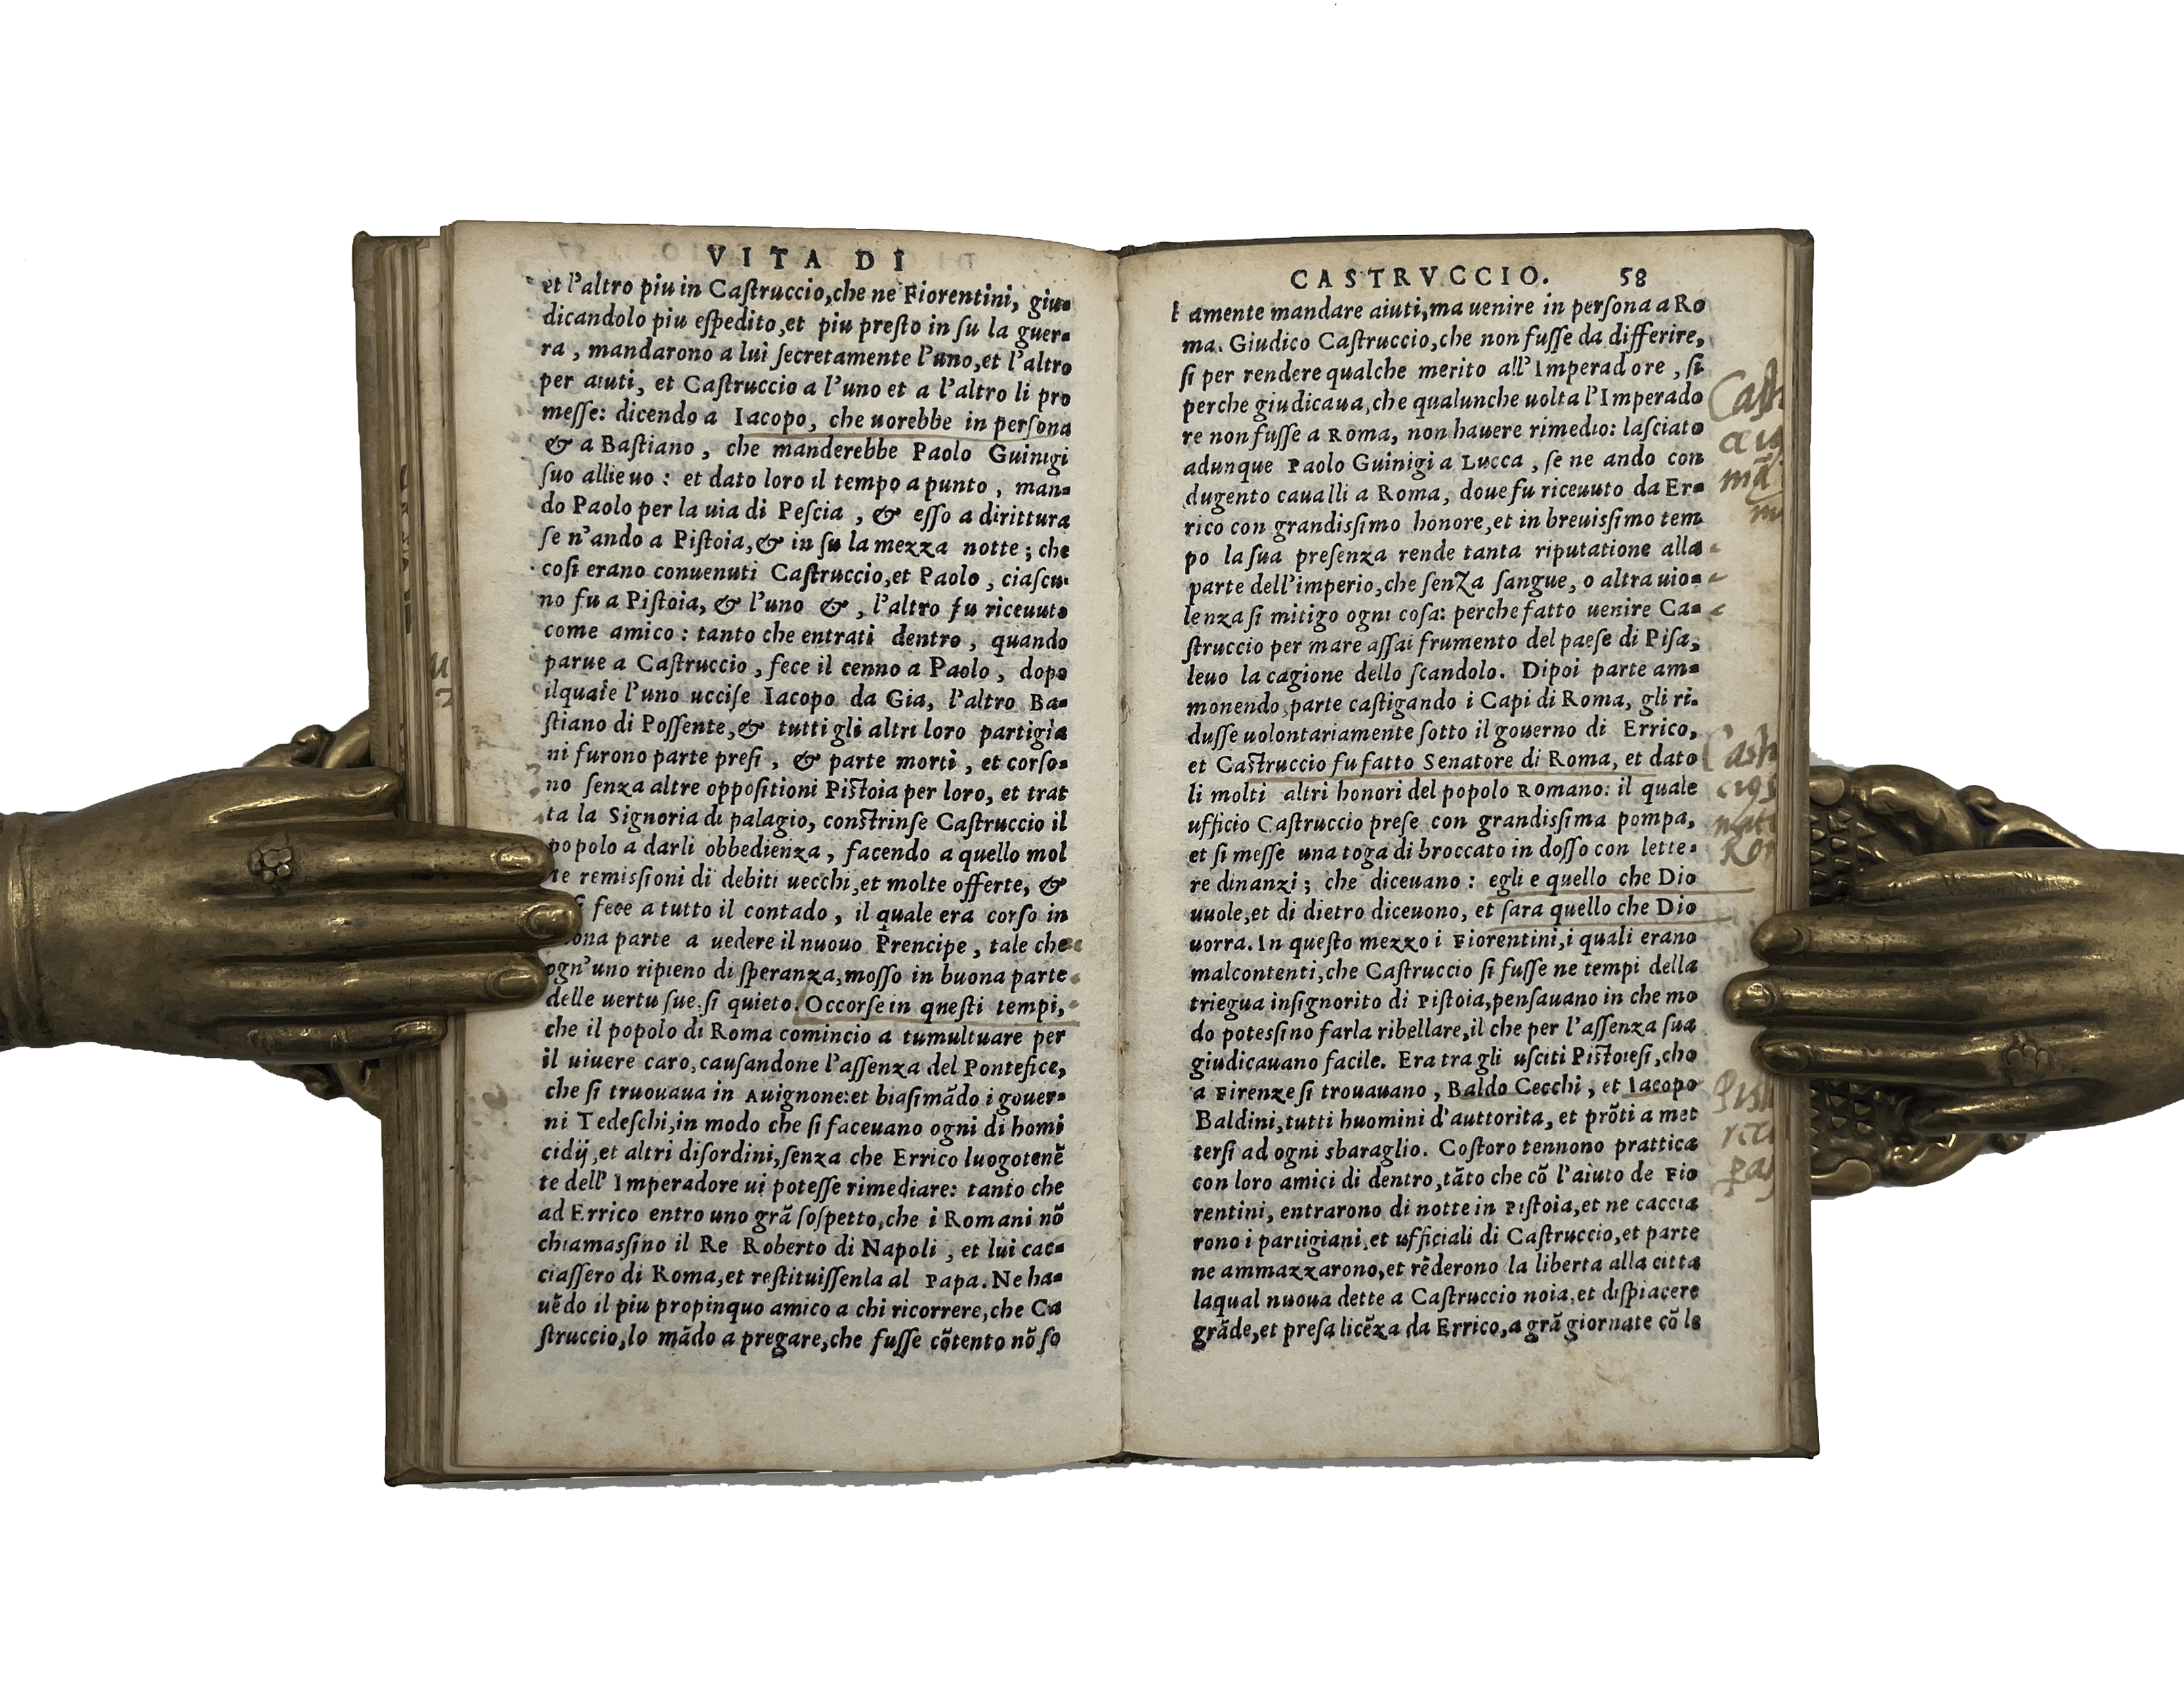 VITA DI
et l'altro piu in Caſtruccio,che ne Fiorentini, giu-
dicandolo piu eſpedito,et piu preſto in ſu la guer-
ra, mandarono a lui ſecretamente l'uno,et l'altro
per aiuti, et Caſtruccio a l'uno et a l'altro li pro
meſſe: dicendo a Iacopo, che uorebbe in perſona
& a Baſtiano, che manderebbe Paolo Guinigi
ſuo allieuo: et dato loro il tempo a punto, man-
do Paolo per la uia di Peſcia, & eſſo a dirittura
ſe n'ando a Piſtoia,& in ſu la mezza notte; che
coſi erano conuenuti Caſtruccio,et Paolo, ciaſcu-
no fu a Piſtoia, & l'uno &, l'altro fu riceuuto
come amico: tanto che entrati dentro, quando
parue a Caſtruccio, fece il cenno a Paolo, dopo
ilquale l'uno ucciſe Iacopo da Gia, l'altro Ba-
ſtiano di Poſſente,& tutti gli altri loro partigia
ni furono parte preſi, & parte morti, et corſo-
no ſenza altre oppoſitioni Piſtoia per loro, et trat
ta la Signoria di palagio, conſtrinſe Caſtruccio il
popolo a darli obbedienza, facendo a quello mol
te remiſſioni di debiti uecchi,et molte offerte, &
fece a tutto il contado, il quale era corſo in
parte a uedere il nuouo Prencipe, tale che
ogn'uno ripieno di ſperanza,moſſo in buona parte
delle uertu ſue,ſi quieto. Occorſe in queſti tempi,
che il popolo di Roma comincio a tumultuare per
il uiuere caro,cauſandone l'aſſenza del Pontefice,
che ſi truouaua in Auignone:et biaſimādo i gouer-
ni Tedeſchi,in modo che ſi faceuano ogni di homi
cidij,et altri diſordini,ſenza che Errico luogotenē
te dell'Imperadore ui poteſſe rimediare: tanto che
ad Errico entro uno grā ſoſpetto,che i Romani nō
chiamaſſino il Re Roberto di Napoli, et lui cac-
ciaſſero di Roma,et reſtituiſſenla al Papa. Ne ha-
uēdo il piu propinquo amico a chi ricorrere,che Ca
ſtruccio,lo mādo a pregare,che fuſſe cōtento nō ſo
CASTRVCCIO. 58
lamente mandare aiuti,ma uenire in perſona a Ro
ma. Giudico Caſtruccio,che non fuſſe da differire,
ſi per rendere qualche merito all'Imperadore, ſi
perche giudicaua,che qualunche uolta l'Imperado
re non fuſſe a Roma, non hauere rimedio: laſciato
adunque Paolo Guinigi a Lucca, ſe ne ando con
dugento caualli a Roma, doue fu riceuuto da Er-
rico con grandiſſimo honore,et in breuiſſimo tem
po la ſua preſenza rende tanta riputatione alla
parte dell'imperio,che ſenza ſangue, o altra uio-
lenza ſi mitigo ogni coſa: perche fatto uenire Ca-
ſtruccio per mare aſſai frumento del paeſe di Piſa,
leuo la cagione dello ſcandolo. Dipoi parte am-
monendo,parte caſtigando i Capi di Roma, gli ri-
duſſe uolontariamente ſotto il gouerno di Errico,
et Caſtruccio fu fatto Senatore di Roma, et dato
li molti altri honori del popolo Romano: il quale
ufficio Caſtruccio preſe con grandiſſima pompa,
et ſi meſſe una toga di broccato in doſſo con lette-
re dinanzi; che diceuano: egli e quello che Dio
uuole,et di dietro diceuono, et ſara quello che Dio
uorra. In queſto mezzo i Fiorentini,i quali erano
malcontenti,che Caſtruccio ſi fuſſe ne tempi della
triegua inſignorito di Piſtoia,penſauano in che mo
do poteſſino farla ribellare,il che per l'aſſenza ſua
giudicauano facile. Era tra gli uſciti Piſtoieſi,che
a Firenze ſi trouauano, Baldo Cecchi, et Iacopo
Baldini,tutti huomini d'auttorita, et prōti a met
terſi ad ogni sbaraglio. Coſtoro tennono prattica
con loro amici di dentro,tāto che cō l'aiuto de Fio
rentini, entrarono di notte in Piſtoia,et ne caccia
rono i partigiani,et ufficiali di Caſtruccio,et parte
ne ammazzarono,et rēderono la liberta alla citta
laqual nuoua dette a Caſtruccio noia,et diſpiacere
grāde,et preſa licēza da Errico,a grā giornate cō le